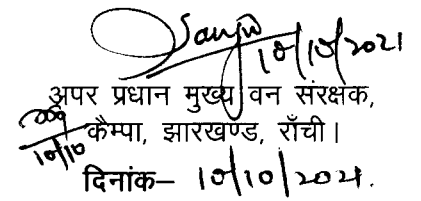 Sanjiv
10/10/2021
अपर प्रधान मुख्य वन संरक्षक,
10/10
कैम्पा, झारखण्ड, राँची।
दिनांक– 10/10/2021.